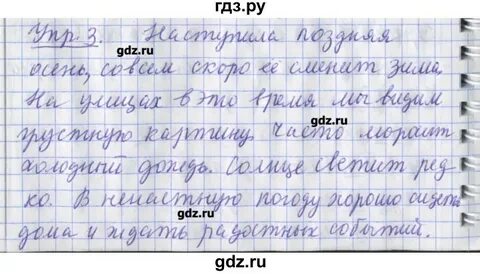 гдз.ру
Упр. 3. Наступила поздняя
осень, совсем скоро ее сменит зима.
На улицах в это время мы видим
грустную картину. Часто моросит
холодный дождь. Солнце светит ред-
ко. В ненастную погоду хорошо сидеть
дома и ждать радостных событий.
gdz.ru
gdz.ru
gdz.ru
gdz.ru
gdz.ru
gdz.ru
gdz.ru